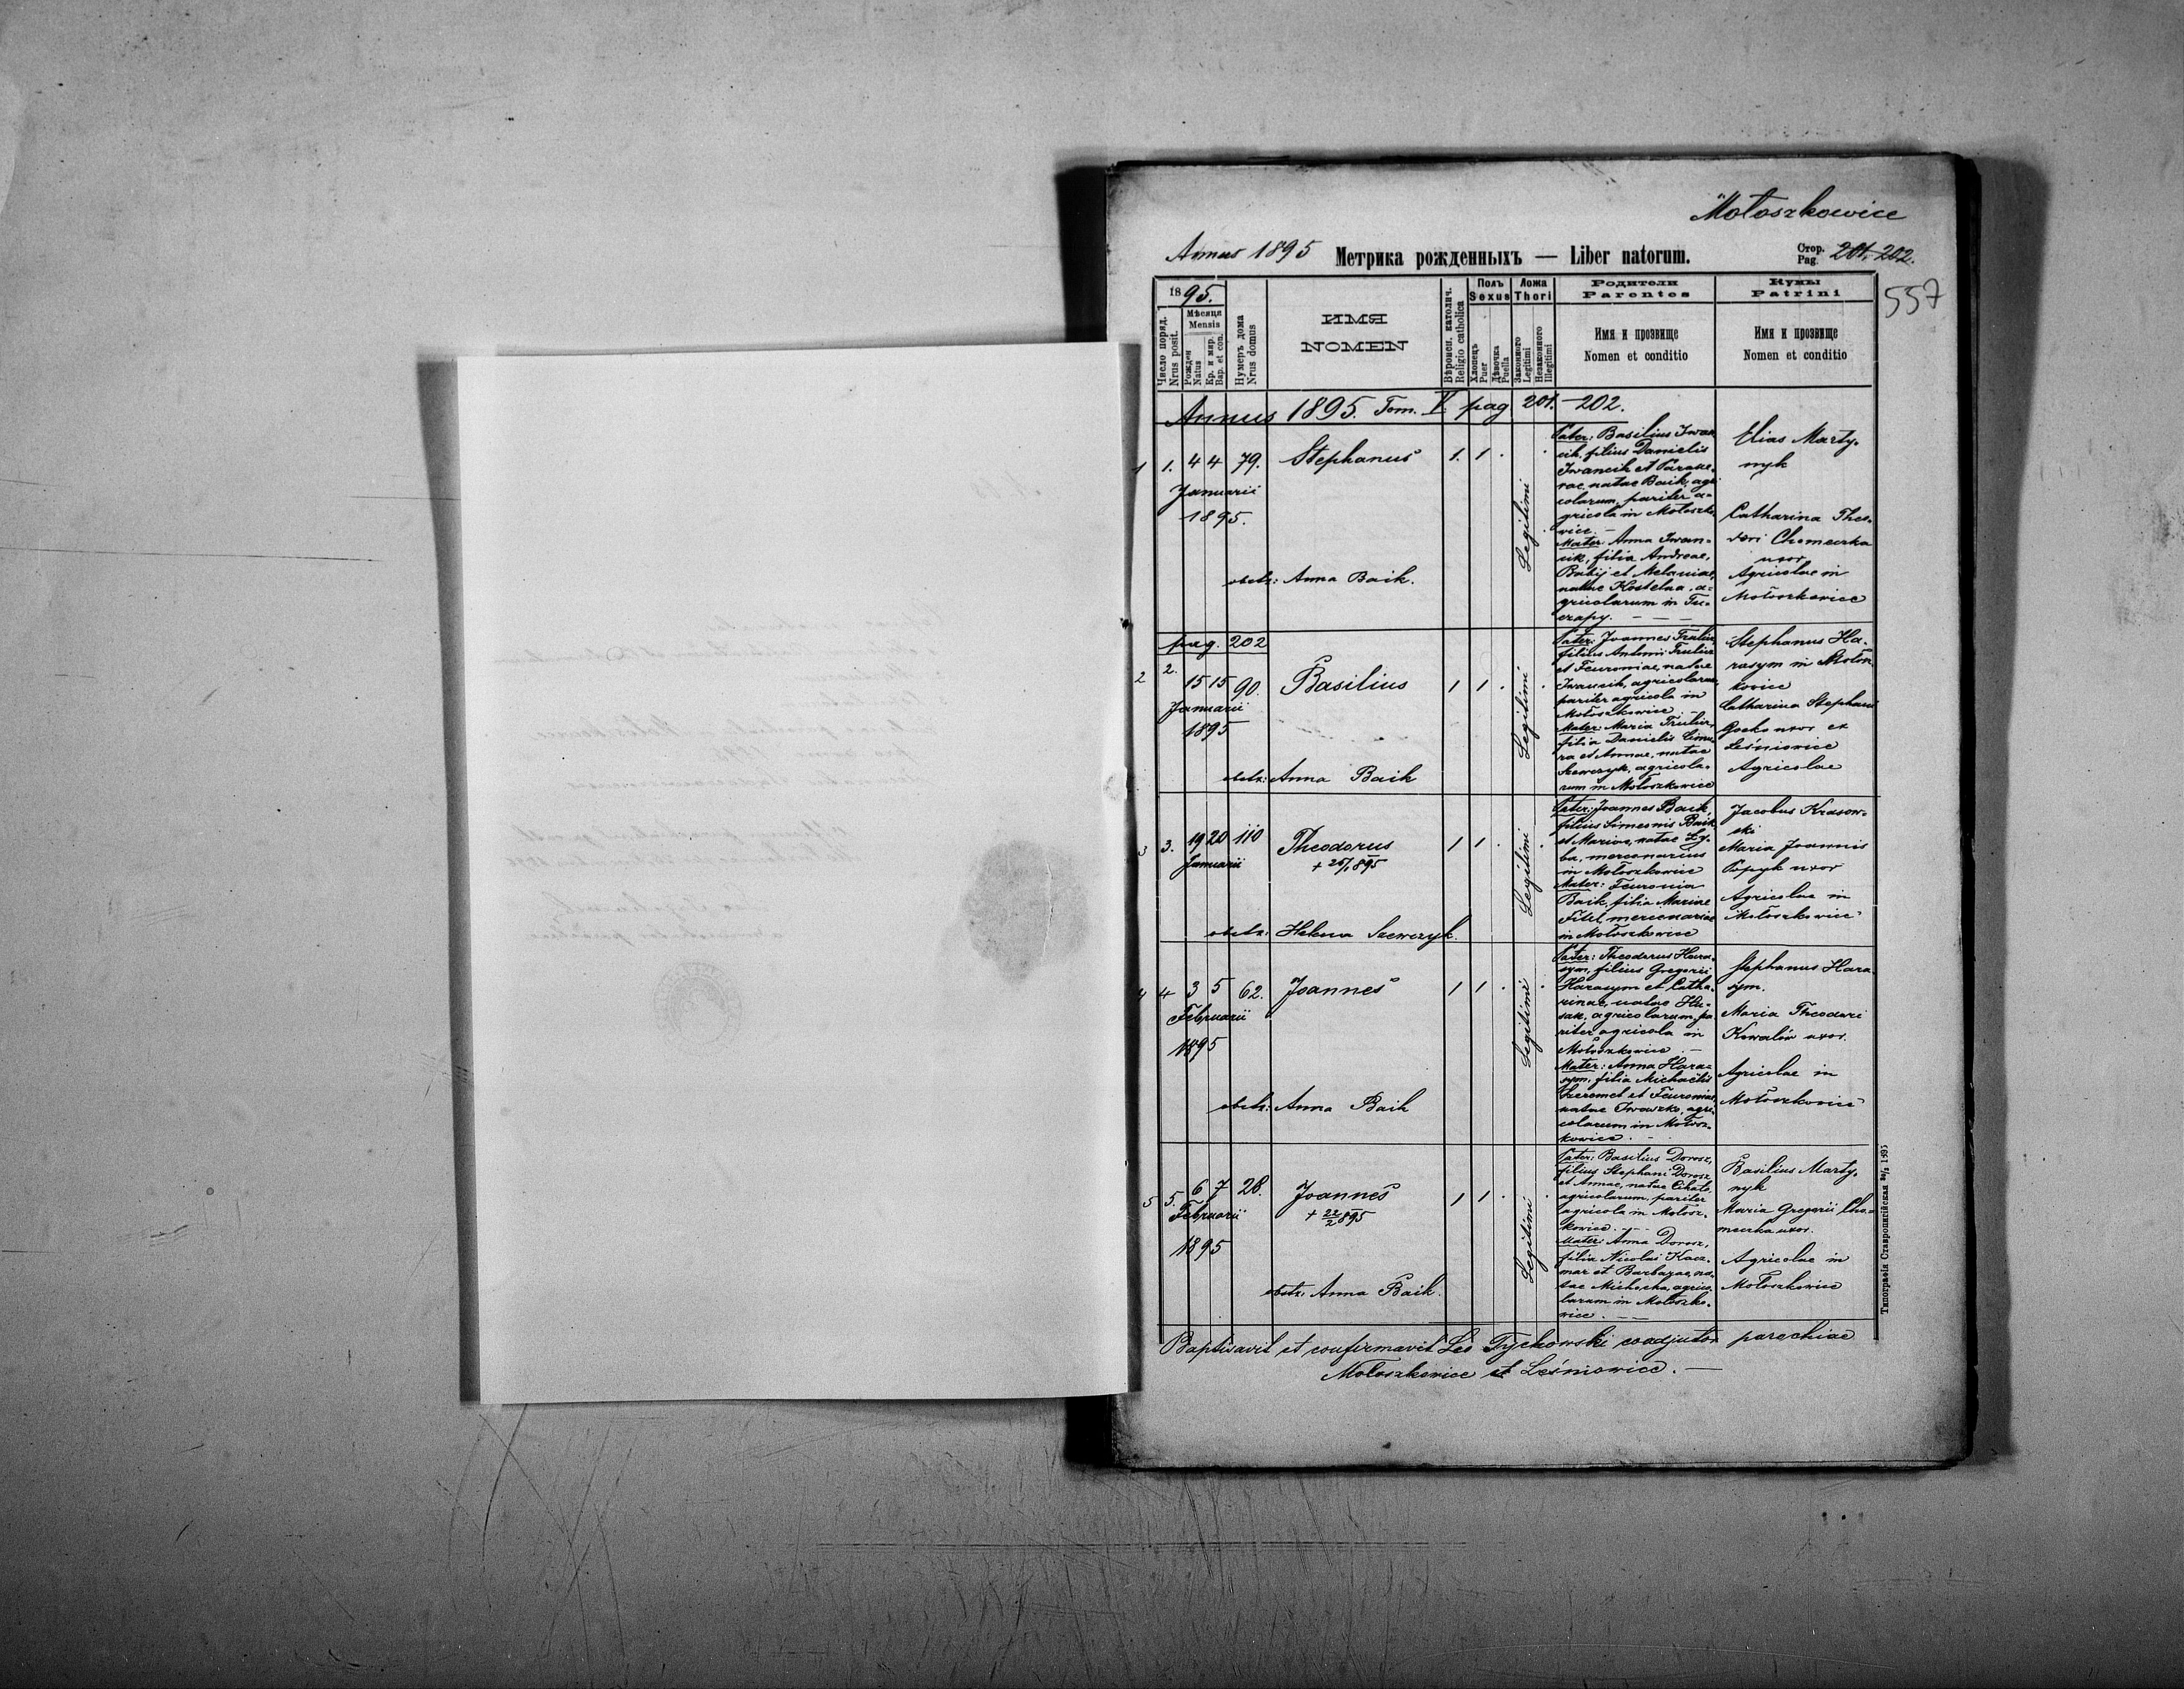 Mołoszkowice
Annus 1895 Метрика рожденныхъ — Liber natorum. Стор. Pag. 201-202.
557
1895.
Число поряд. Nrus posit.
Мѣсяця Mensis
Рожден Natus
Кр. и мир. Bap. et con.
Нумеръ дома Nrus domus
ИМЯ
NOMEN
Вѣроисп. католич. Religio catholica
Полъ Sexus
Хлопецъ Puer
Дѣвочка Puella
Ложа Thori
Законного Legitimi
Незаконного Illegitimi
Родители
Parentes
Имя и прозвище
Nomen et conditio
Кумы
Patrini
Имя и прозвище
Nomen et conditio
Annus 1895. Tom. V. pag 201.-202.
1 1. 4 4 79. Stephanus 1. 1 .
Januarii
1895.
obstr: Anna Baik.
Legitimi
Pater: Basilius Iwan-
cik, filius Danielis
Iwancik et Paraske-
vae, natae Baik, agri
colarum, pariter a-
gricola in Mołoszko-
wice.—
Mater: Anna Iwan-
cik, filia Andreae
Babij et Melaniae,
natae Kostelna, a-
gricolarum in Tu-
czapy. — — —
Elias Marty-
nyk
Catharina Theo-
dori Chomeczka
uxor
Agricolae in
Mołoszkowice
pag. 202
2 2. 15 15 90. Basilius 1 1 .
Januarii
1895
obstr: Anna Baik
Legitimi
Pater: Joannes
filius Antonii
et Feuroniae, natae
Iwancik, agricolarum,
pariter agricola in
Mołoszkowice
Mater: Maria
filia Danielis
ra et Annae, natae
Szewczyk, agricola-
rum in Mołoszkowice
Stephanus Ha-
rasym in Mołosz
kowice
Catharina Stephani
Gocko uxor ex
Leśniowice
Agricolae
3 3. 19 20 110 Theodorus 1 1 .
Januarii
+ 26/1 895
obstr: Helena Szewczyk.
Legitimi
Pater: Joannes Baik,
filius Simeonis Baik
et Mariae, natae Ły-
ba, mercenarius
in Mołoszkowice
Mater: Feuronia
Baik, filia Mariae
Fitel, mercenariae
in Mołoszkowice
Jacobus Krasow-
ski
Maria Joannis
Popyk uxor
Agricolae in
Mołoszkowice
4 4 3 5 62. Joannes 1 1 .
Februarii
1895
obstr: Anna Baik
Legitimi
Pater: Theodorus Hara-
sym, filius Gregorii
Harasym et Catha-
rinae, natae Hu-
sak, agricolarum, pa
riter agricola in
Mołoszkowice. —
Mater: Anna Hara-
sym, filia Michaëlis
Szeremet et Feuroniae,
natae Iwaszko, agri-
colarum in Mołosz-
kowice. —
Stephanus Hara
sym.
Maria Theodori
Kowalów uxor.
Agricolae in
Mołoszkowice
5 5. 6 7 28. Joannes 1 1 .
Februarii
+ 22/2 895
1895
obstr. Anna Baik.
Legitimi
Pater: Basilius Dorosz,
filius Stephani Dorosz
et Annae, natae Cikało,
agricolarum, pariter
agricola in Mołosz-
kowice. —
Mater: Anna Dorosz,
filia Nicolai Kacz-
mar et Barbarae, na-
tae Michocka, agrico
larum in Mołoszko-
wice. —
Basilius Marty-
nyk
Maria Gregorii Cho-
meczka uxor.
Agricolae in
Mołoszkowice
Baptisavit et confirmavit Leo Tychowski coadjutor parochiae
Mołoszkowice et Leśniowice. —
Типографія Ставропигійская 1893